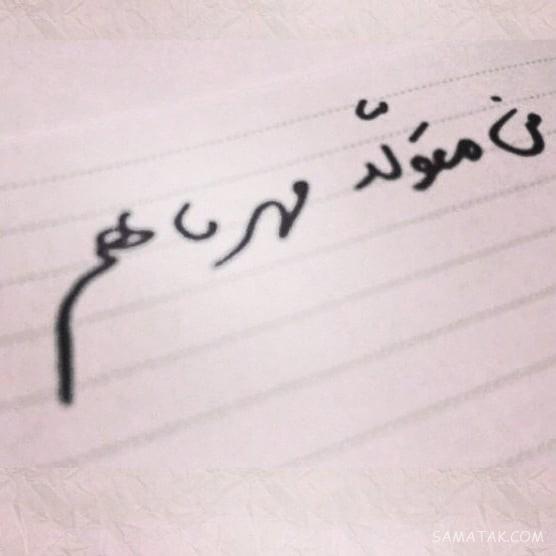 من متوَلّد مهر ماهم
SAMATAK.COM